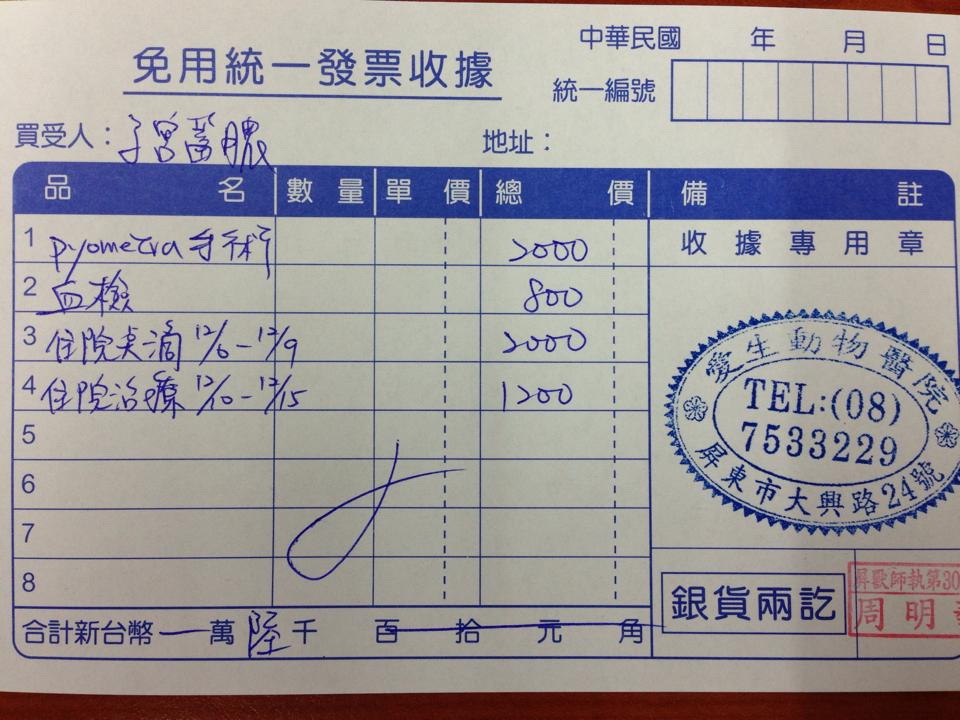 中華民國 年 月 日
免用統一發票收據
統一編號
買受人：子宮蓄膿 地址：
品名 數量 單價 總價 備註
1 pyometra 手術 2000
收據專用章
2 血檢 800
3 住院点滴 12/6-12/9 2000
4 住院治療 12/10-12/15 1200
5
6
7
8
愛生動物醫院
TEL:(08)
7533229
屏東市大興路24號
合計新台幣 萬 陸 千 百 拾 元 角
銀貨兩訖
屏獸師執第30
周明